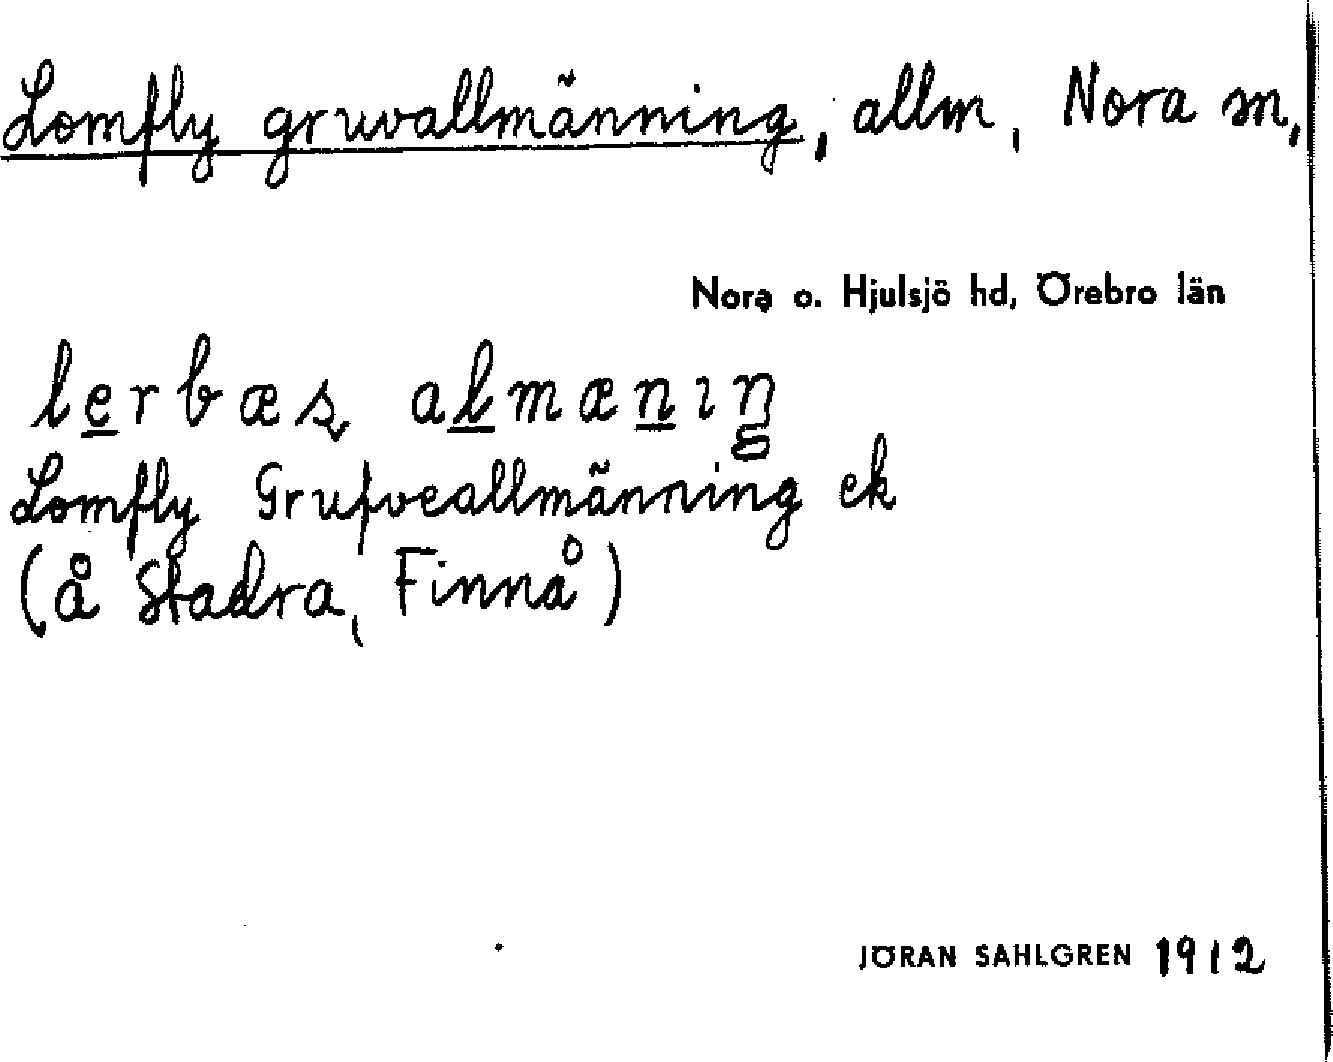 Lomfly gruvallmänning, allm, Nora sn,
Nora o. Hjulsjö hd, Örebro län
lerbæs almæniŋ
Lomfly Grufveallmänning ek
(å Stadra, Finnå)
JÖRAN SAHLGREN 1912